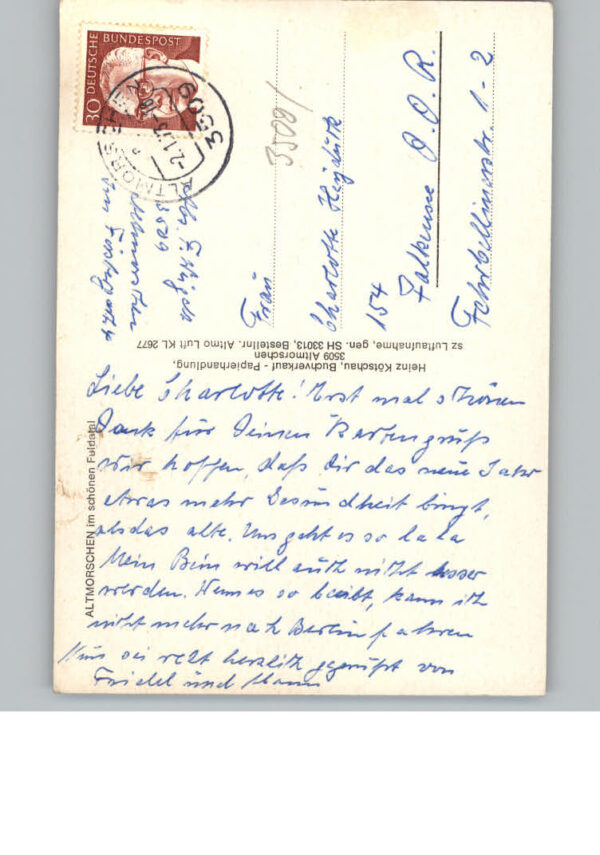 DEUTSCHE BUNDESPOST
30
3509
ALTMORSCHEN
-2.1.73-10
3509
35091
Frau
Charlotte Heyduck
154
Falkensee D.D.R.
Fehrbellinerstr. 1-2
Heinz Kötschau, Buchverkauf - Papierhandlung,
3509 Altmorschen
sz Luftaufnahme, gen. SH 33013, Bestellnr. Altmo Luft KL 2677
ALTMORSCHEN im schönen Fuldatal
Liebe Charlotte! Erst mal schönen
Dank für Deinen Kartengruß
Wir hoffen, daß Dir das neue Jahr
etwas mehr Gesundheit bringt,
als das alte. Uns geht es so la la
Mein Bein will auch nicht besser
werden. Wenn es so bleibt, kann ich
nicht mehr nach Berlin fahren
Nun sei recht herzlich gegrüßt von
Friedel und Mann